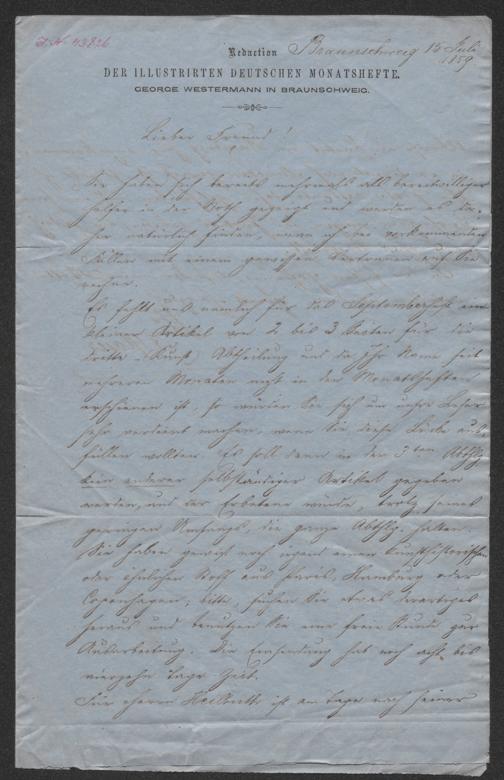 J. N. 43826
Redaction
Braunschweig 15 Juli
1859
DER ILLUSTRIRTEN DEUTSCHEN MONATSHEFTE.
GEORGE WESTERMANN IN BRAUNSCHWEIG.
Lieber Freund!
Sie haben sich bereits mehrmals als bereitwilliger
Helfer in der Noth gezeigt und werden es da-
her natürlich finden, wenn ich bei vorkommenden
Fällen mit einem gewissen Vertrauen auf Sie
rechne.
Es fehlt uns nämlich für das Septemberheft ein
kleiner Artikel von 2 bis 3 Seiten für die
dritte (Kunst) Abtheilung und da Ihr Name seit
mehreren Monaten nicht in den Monatsheften
erschienen ist, so würden Sie sich um unsre Leser
sehr verdient machen, wenn Sie diese Lücke aus-
füllen wollten. Es soll dann in der 3ten Abthlg
kein anderer selbständiger Artikel gegeben
werden, und der Erbetene würde, trotz seines
geringen Umfangs, die ganze Abthlg. füllen.
Sie haben gewiß noch irgend einen kunsthistorischen
oder ähnlichen Stoff aus Paris, Hamburg oder
Copenhagen; bitte, suchen Sie etwas derartiges
heraus und benutzen Sie eine freie Stunde zur
Ausarbeitung. Die Einsendung hat noch acht bis
vierzehn Tage Zeit.
Für Herrn ist am Tage nach seiner